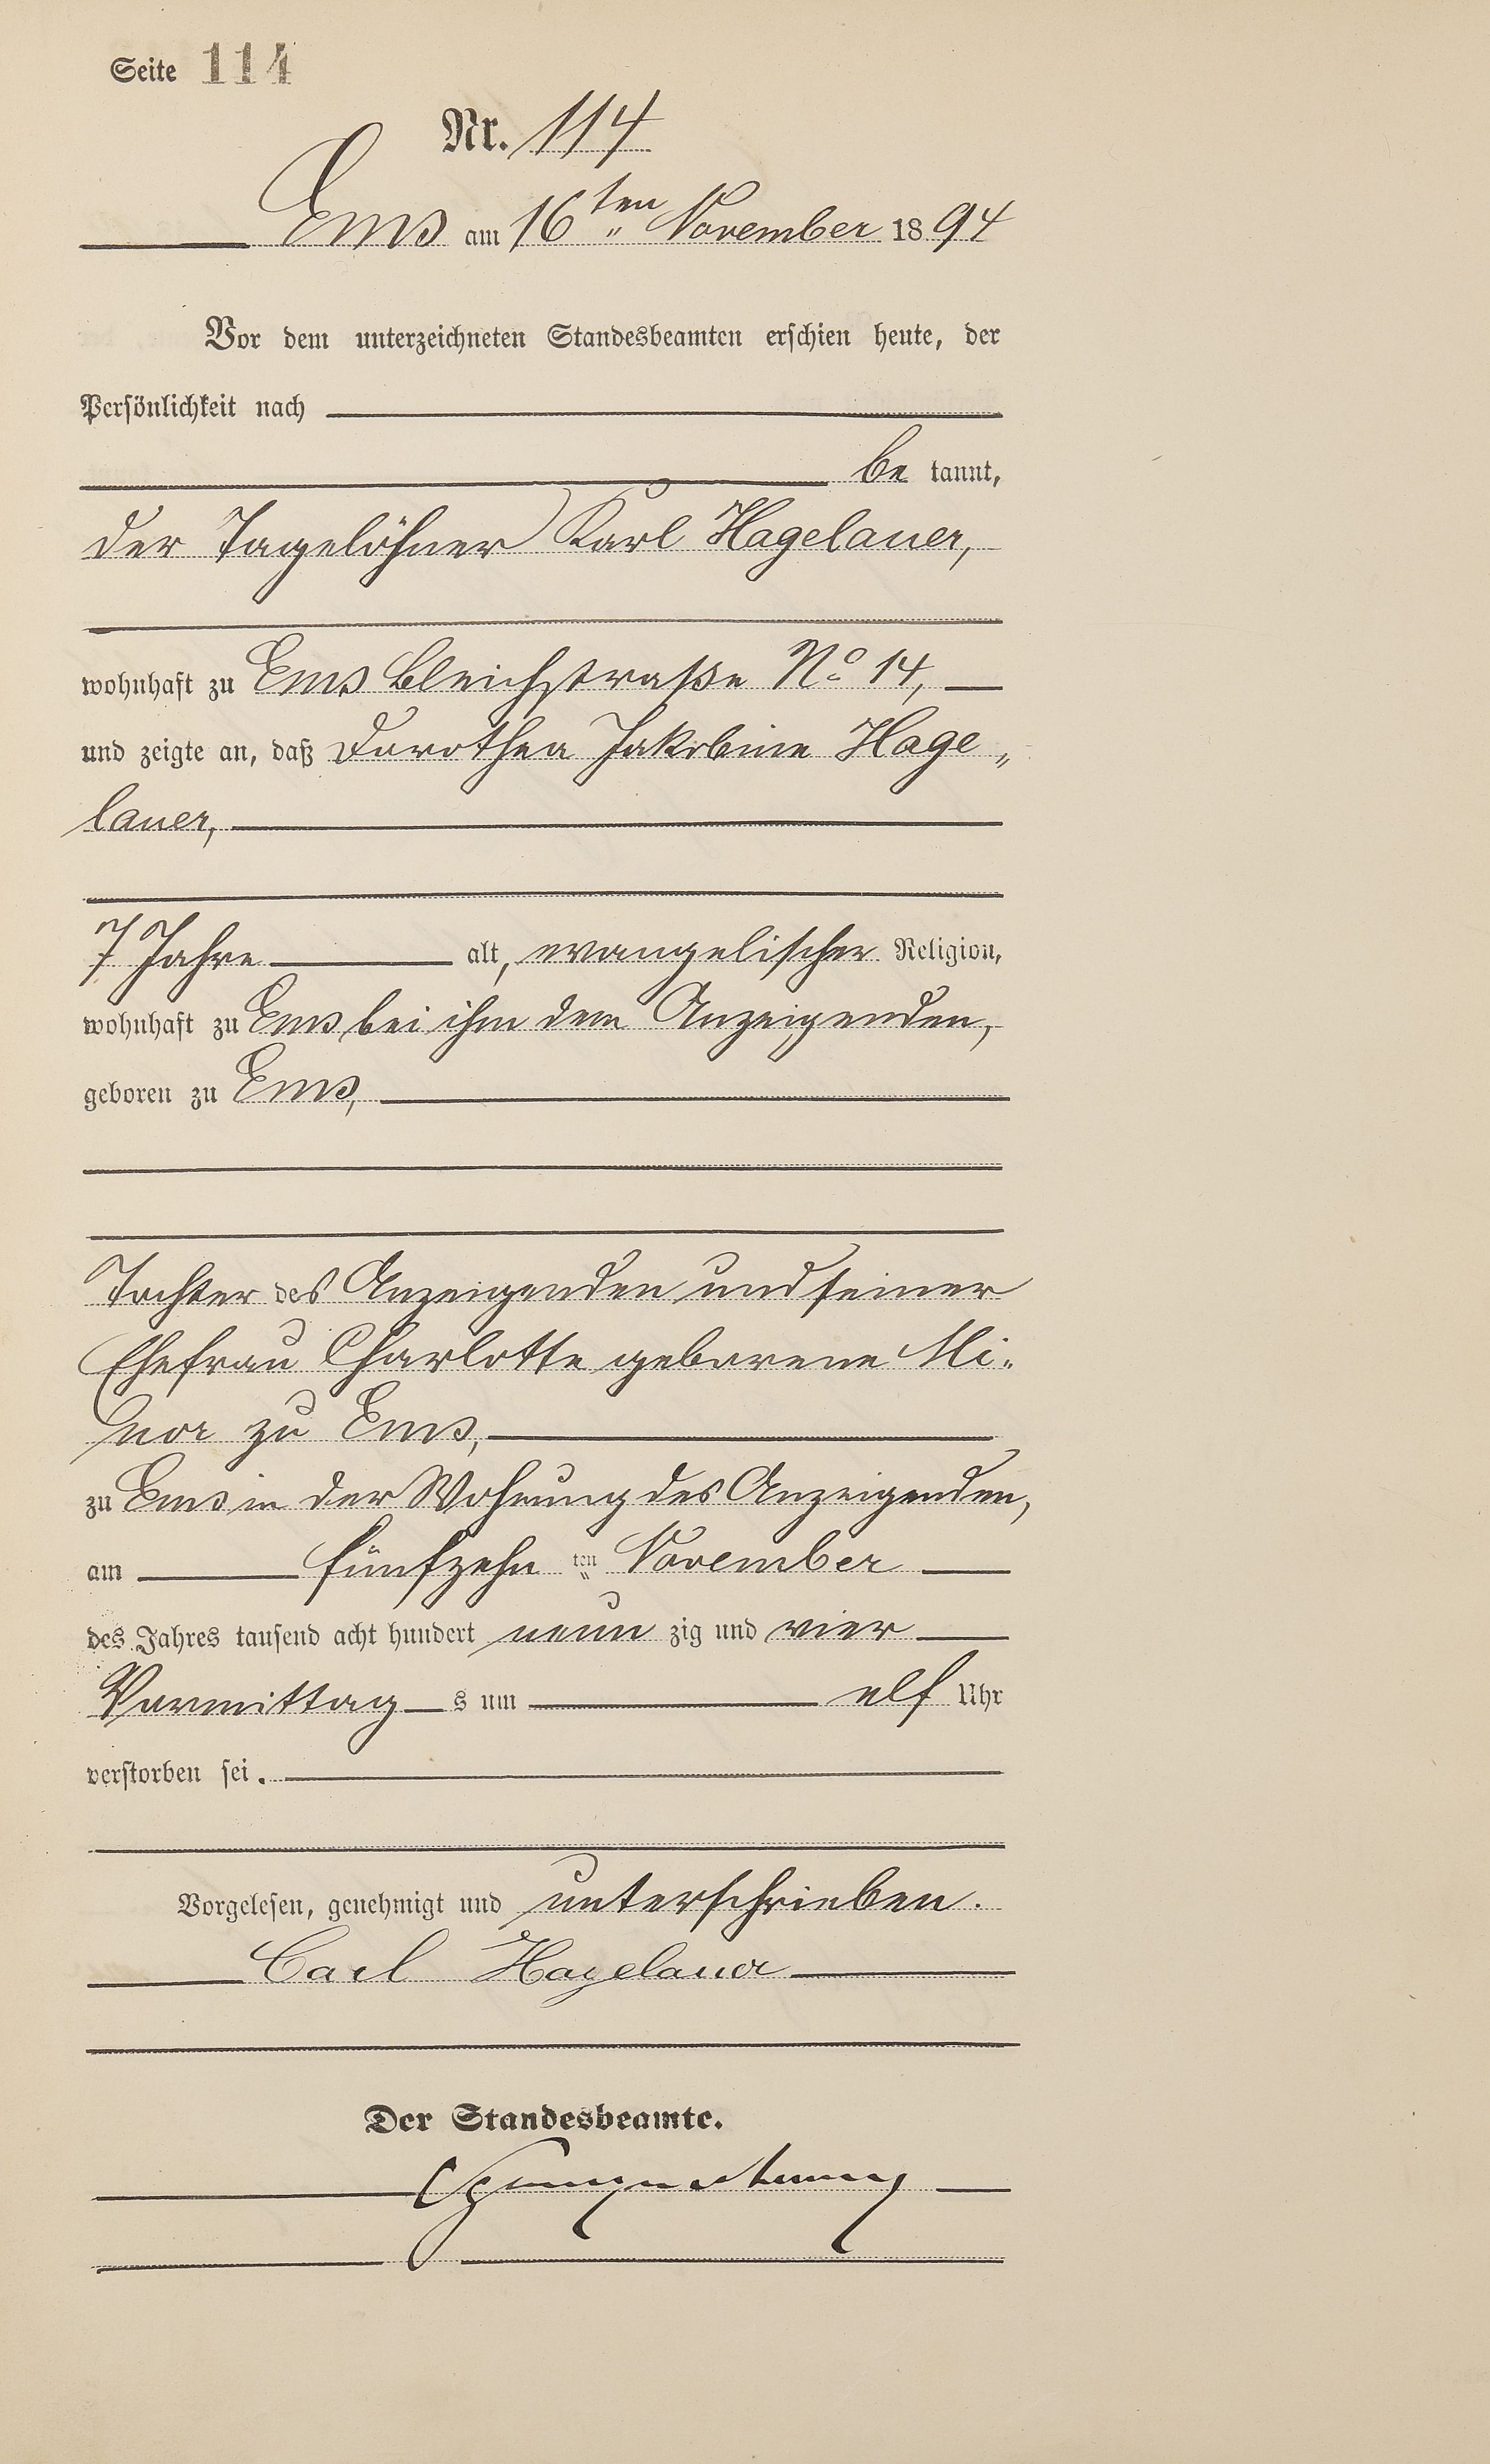 Seite 114
Nr. 114
Ems am 16ten November 1894
Vor dem unterzeichneten Standesbeamten erschien heute, der
Persönlichkeit nach
be kannt,
der Tagelöhner Karl Hagelauer,
wohnhaft zu Ems Bleichstraße No 14,
und zeigte an, daß Dorothea Jakobine Hage„
lauer,
7 Jahre alt, evangelischer Religion,
wohnhaft zu Ems bei ihm dem Anzeigenden,
geboren zu Ems,
Tochter des Anzeigenden und seiner
Ehefrau Charlotte geborene Mi-
nor zu Ems,
zu Ems in der Wohnung des Anzeigenden,
am fünfzehn ten November
des Jahres tausend acht hundert neun zig und vier
Vormittag s um elf Uhr
verstorben sei.
Vorgelesen, genehmigt und unterschrieben.
Carl Hagelauer
Der Standesbeamte.